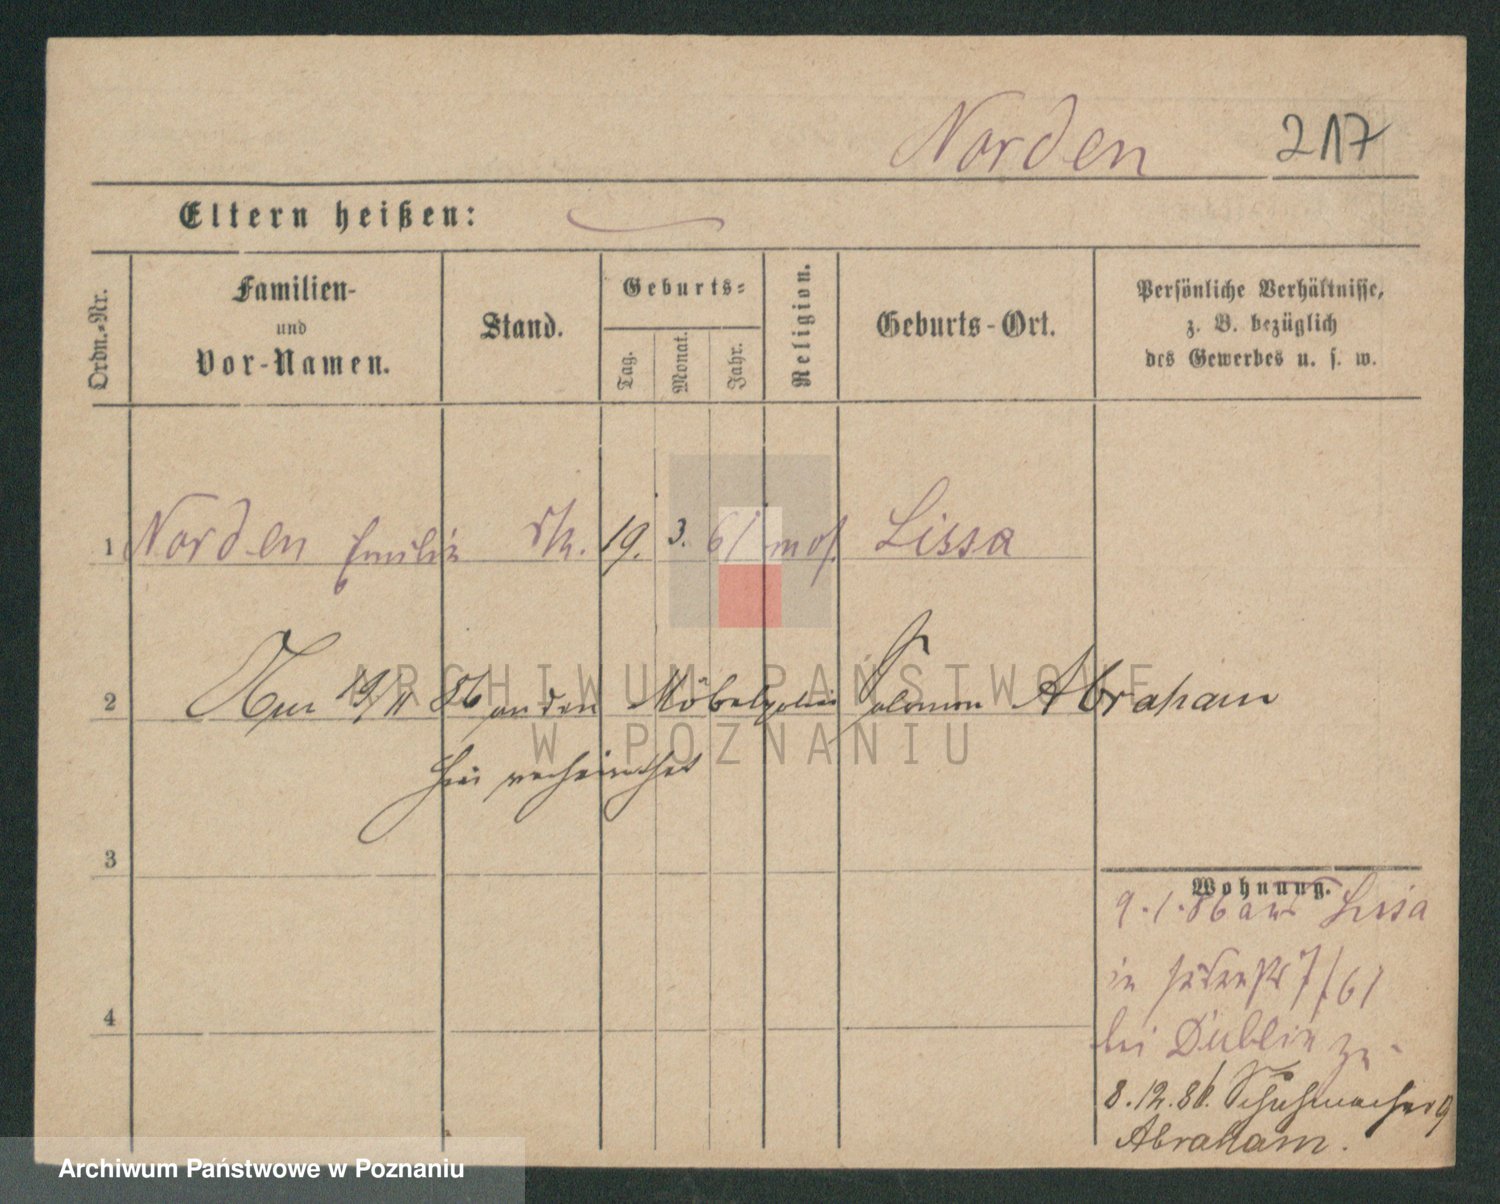 Norden 217
Eltern heißen:
Ordn.-Nr.
Familien-
und
Vor-Namen.
Stand.
Geburts-
Tag.
Monat.
Jahr.
Religion.
Geburts-Ort.
Persönliche Verhältnisse,
z. B. bezüglich
des Gewerbes u. s. w.
1 Norden Emilie 19. 3. 61 mos. Lissa
2 Am 19/11 86 an den Salomon Abraham
hier verheirathet
3
4
Wohnung.
9.1.86 aus Lissa
in 7/61
bei Dublin zu-
8.12.86. Schuhmacher 9
Abraham.
ARCHIWUM PAŃSTWOWE
W POZNANIU
Archiwum Państwowe w Poznaniu